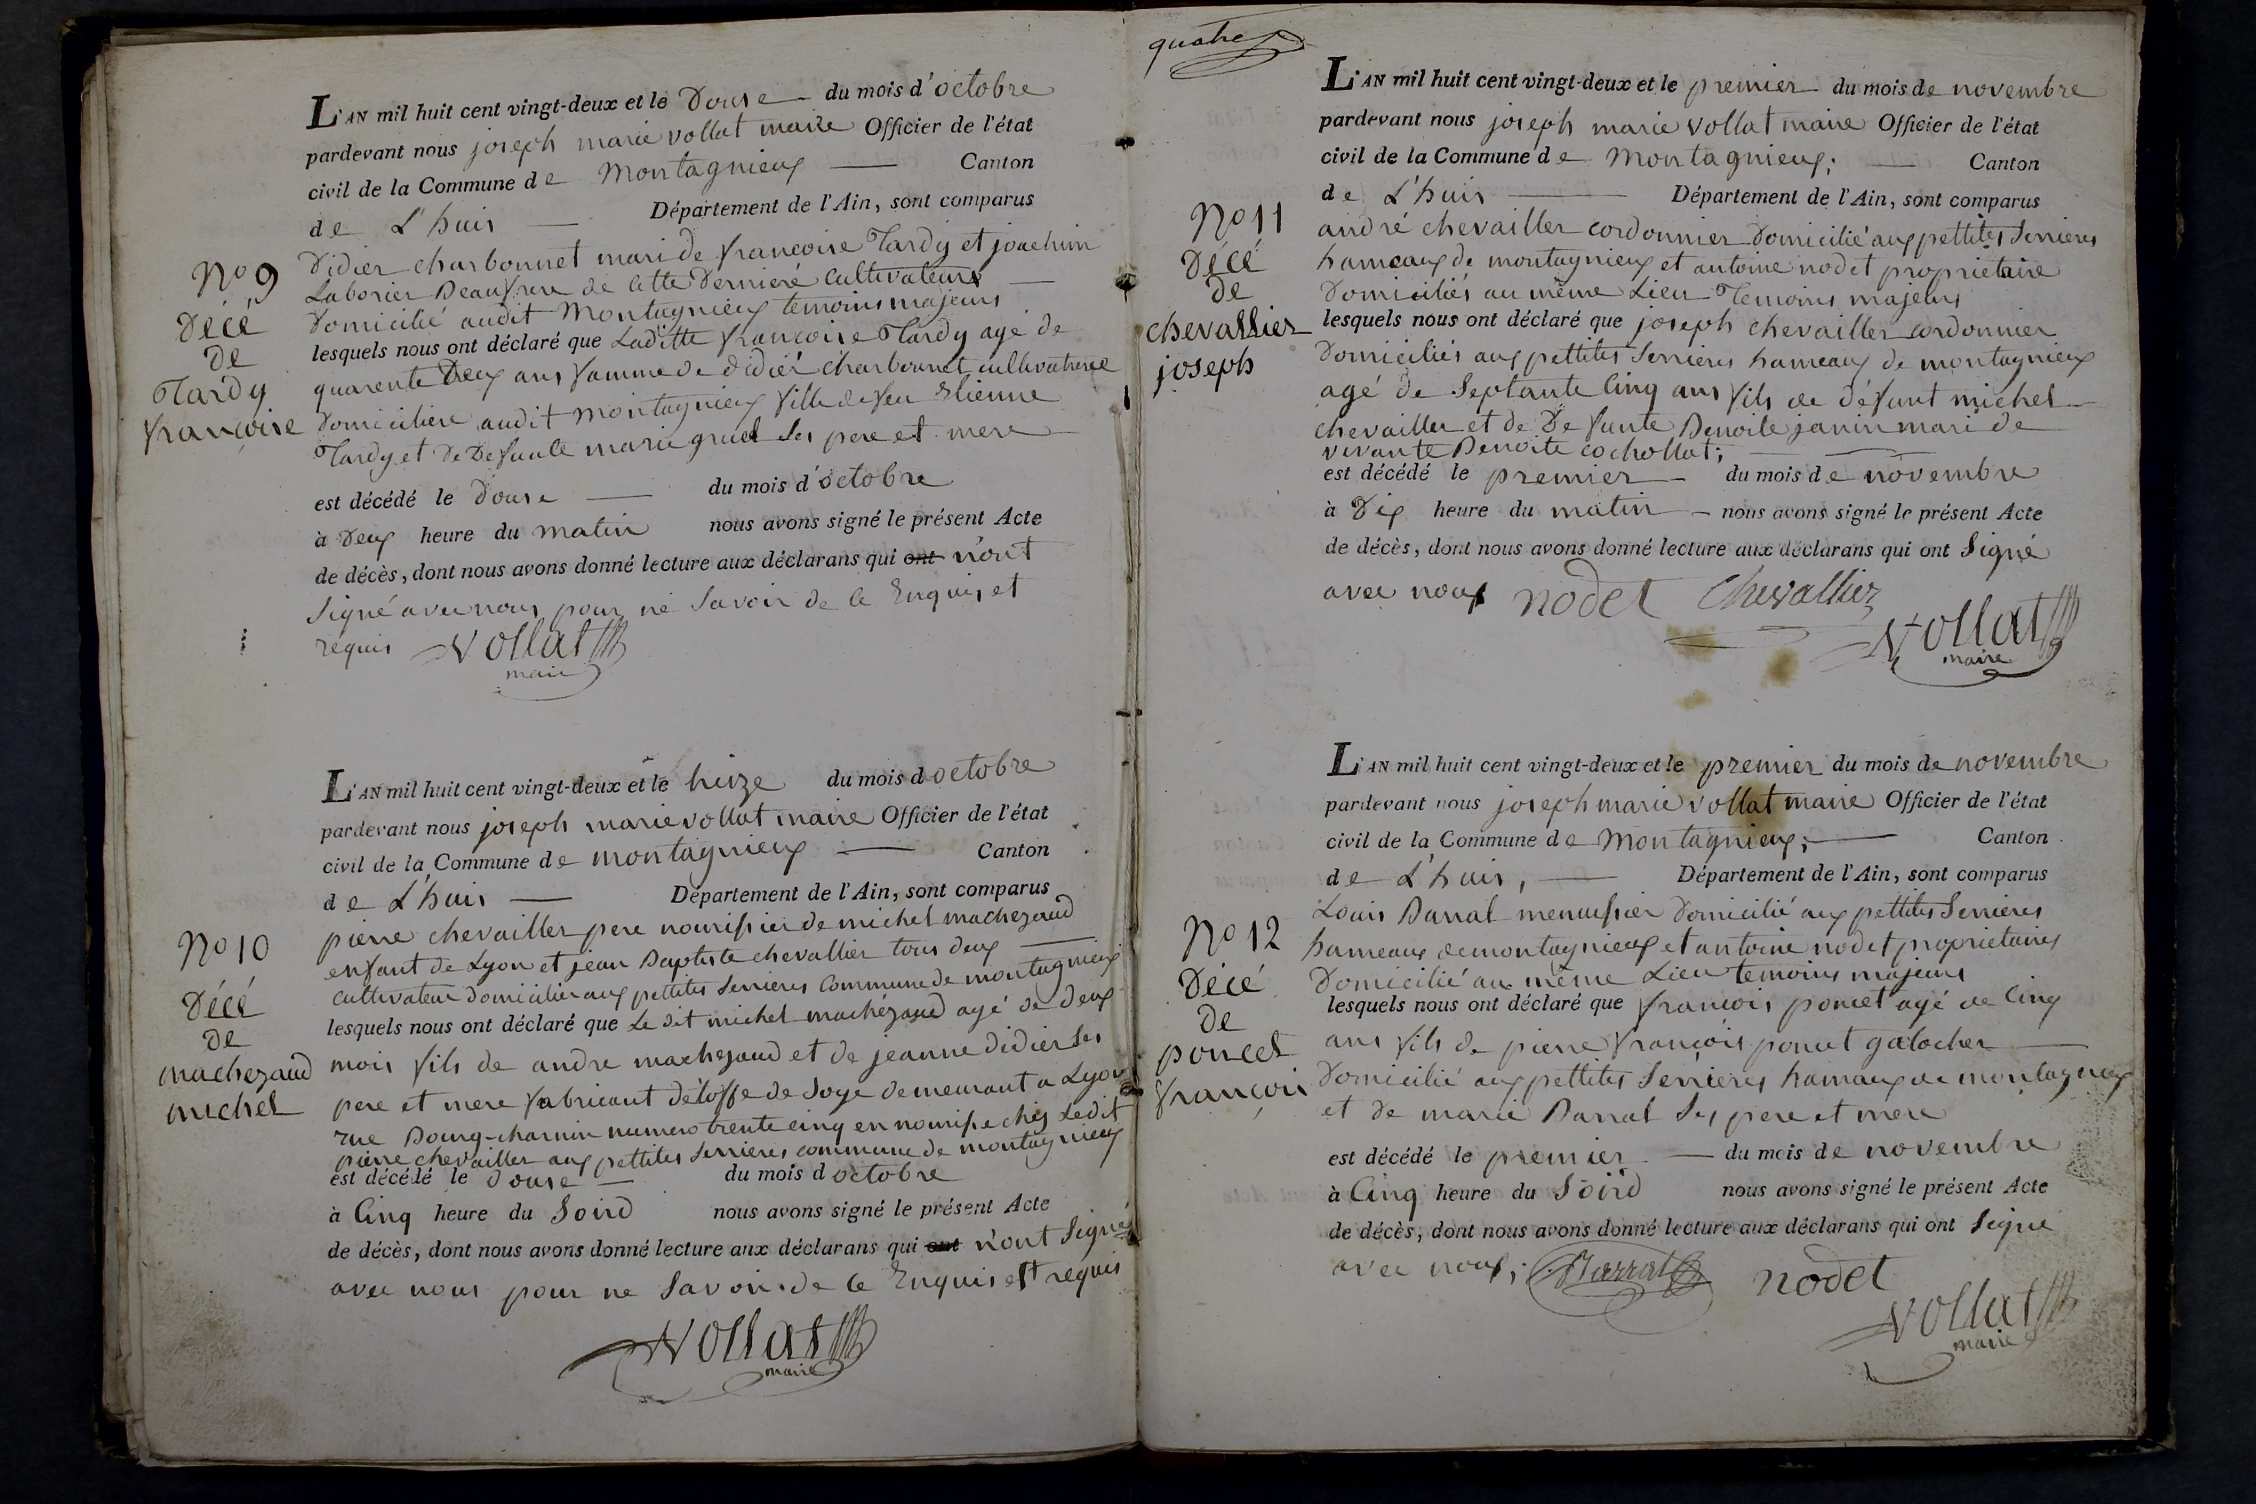 L'AN mil huit cent vingt-deux et le Douse du mois d'octobre
pardevant nous joseph marie vollat maire Officier de l'état
civil de la Commune de Montagnieux Canton
de L'huis Département de l'Ain, sont comparus
Didier charbonnet mari de francoise Tardy et joachim
Laborier Beaufrere de cette Derniere Cultivateurs
Domicilié audit Montagnieux temoins majeurs
lesquels nous ont déclaré que Laditte francoise Tardy agé de
quarente Deux ans famme de didier charbonnet cultivatrice
Domiciliere audit Montagnieux fille de feu Etienne
Tardy et de Defunte marie gruel ses pere et mere
est décédé le Douse du mois d'octobre
à Deux heure du matin nous avons signé le présent Acte
de décès, dont nous avons donné lecture aux déclarans qui ont n'ont
Signé avec nous pour ne Savoir de ce Enquis et
requis Vollat
maire
No 9
Décé
de
Tardy
françoise
L'AN mil huit cent vingt-deux et le treize du mois d octobre
pardevant nous joseph marie vollat maire Officier de l'état
civil de la Commune de montagnieux Canton
de L'huis Département de l'Ain, sont comparus
pierre chevailler pere nourissier de michel machezaud
enfant de Lyon et jean Baptiste chevallier tous deux
cultivateur domicilier aux pettites Serrieres Commune de montagnieux
lesquels nous ont déclaré que Le dit michel machézaud agé de deux
mois fils de andre machezaud et de jeanne didier ses
pere et mere fabricant d'étoffe de Soye demeurant a Lyon
rue Bourg-charnin numero trente cinq en nourisse chez Ledit
pierre chevailler aux pettites Serrieres commune de montagnieux
est décédé le douse du mois d octobre
à Cinq heure du Soird nous avons signé le présent Acte
de décès, dont nous avons donné lecture aux déclarans qui ont n'ont Signés
avec nous pour ne Savoir de ce Enquis et requis
Vollat
maire
No 10
Décé
de
machezaud
michel
quatre
L'AN mil huit cent vingt-deux et le premier du mois de novembre
pardevant nous joseph marie Vollat maire Officier de l'état
civil de la Commune de Montagnieux; Canton
de L'huis Département de l'Ain, sont comparus
andré chevailler cordonnier Domicilié aux pettites Serrieres
hameaux de montagnieux et antoine nodet proprietaire
Domiciliés au même Lieu Temoins majeurs
lesquels nous ont déclaré que joseph chevailler cordonnier
Domiciliés aux pettites Serrieres hameaux de montagnieux
agé de Septante Cinq ans fils de défunt michel
chevailler et de Defunte Benoite janin mari de
vivante Benoite cochollat;
est décédé le premier du mois de novembre
à Dix heure du matin nous avons signé le présent Acte
de décès, dont nous avons donné lecture aux déclarans qui ont Signé
avec nous nodet Chevallier
Vollat
maire
No 11
Décé
de
chevallier
joseph
L'AN mil huit cent vingt-deux et le premier du mois de novembre
pardevant nous joseph marie vollat maire Officier de l'état
civil de la Commune de Montagnieux; Canton
de L'huis, Département de l'Ain, sont comparus
Louis Barral menuisier Domicilié aux pettites Serrieres
hameaux de montagnieux et antoine nodet proprietaires
Domicilié au même Lieu temoins majeurs
lesquels nous ont déclaré que françois poncet agé de Cinq
ans fils de pierre françois poncet galocher
Domicilié aux pettites Serrieres hamaux de montagnieux
et de marie Barral Ses pere et mere
est décédé le premier du mois de novembre
à Cinq heure du Soird nous avons signé le présent Acte
de décès, dont nous avons donné lecture aux déclarans qui ont Signe
avec nous; Barral nodet
Vollat
maire
No 12
Décé
de
poncet
françois